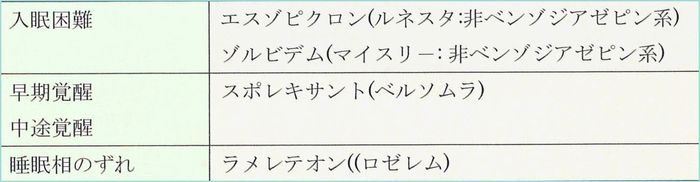 入眠困難 エスゾピクロン(ルネスタ:非ベンゾジアゼピン系)
ゾルビデム(マイスリー: 非ベンゾジアゼピン系)
早期覚醒 スポレキサント(ベルソムラ)
中途覚醒
睡眠相のずれ ラメレテオン((ロゼレム)